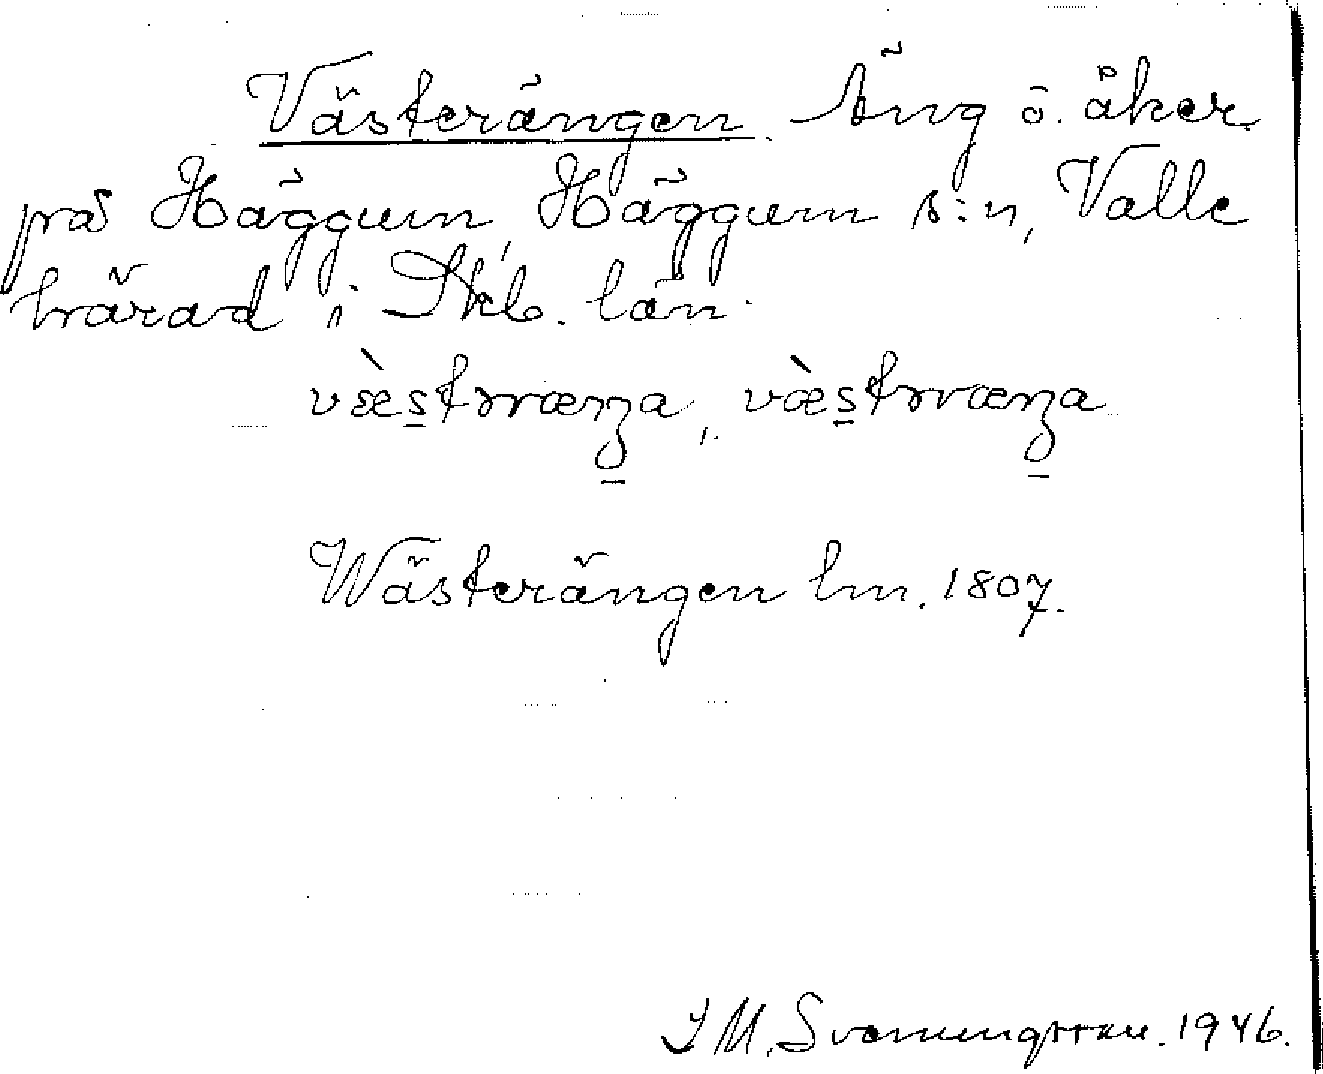 Västerängen. Äng o. åker
på Häggum, Häggum s:n, Valle
härad i Skb. län.
væ̀stəræŋa, væ̀stəræŋa
Wästerängen lm. 1807.
I M. Svanungsson. 1946.